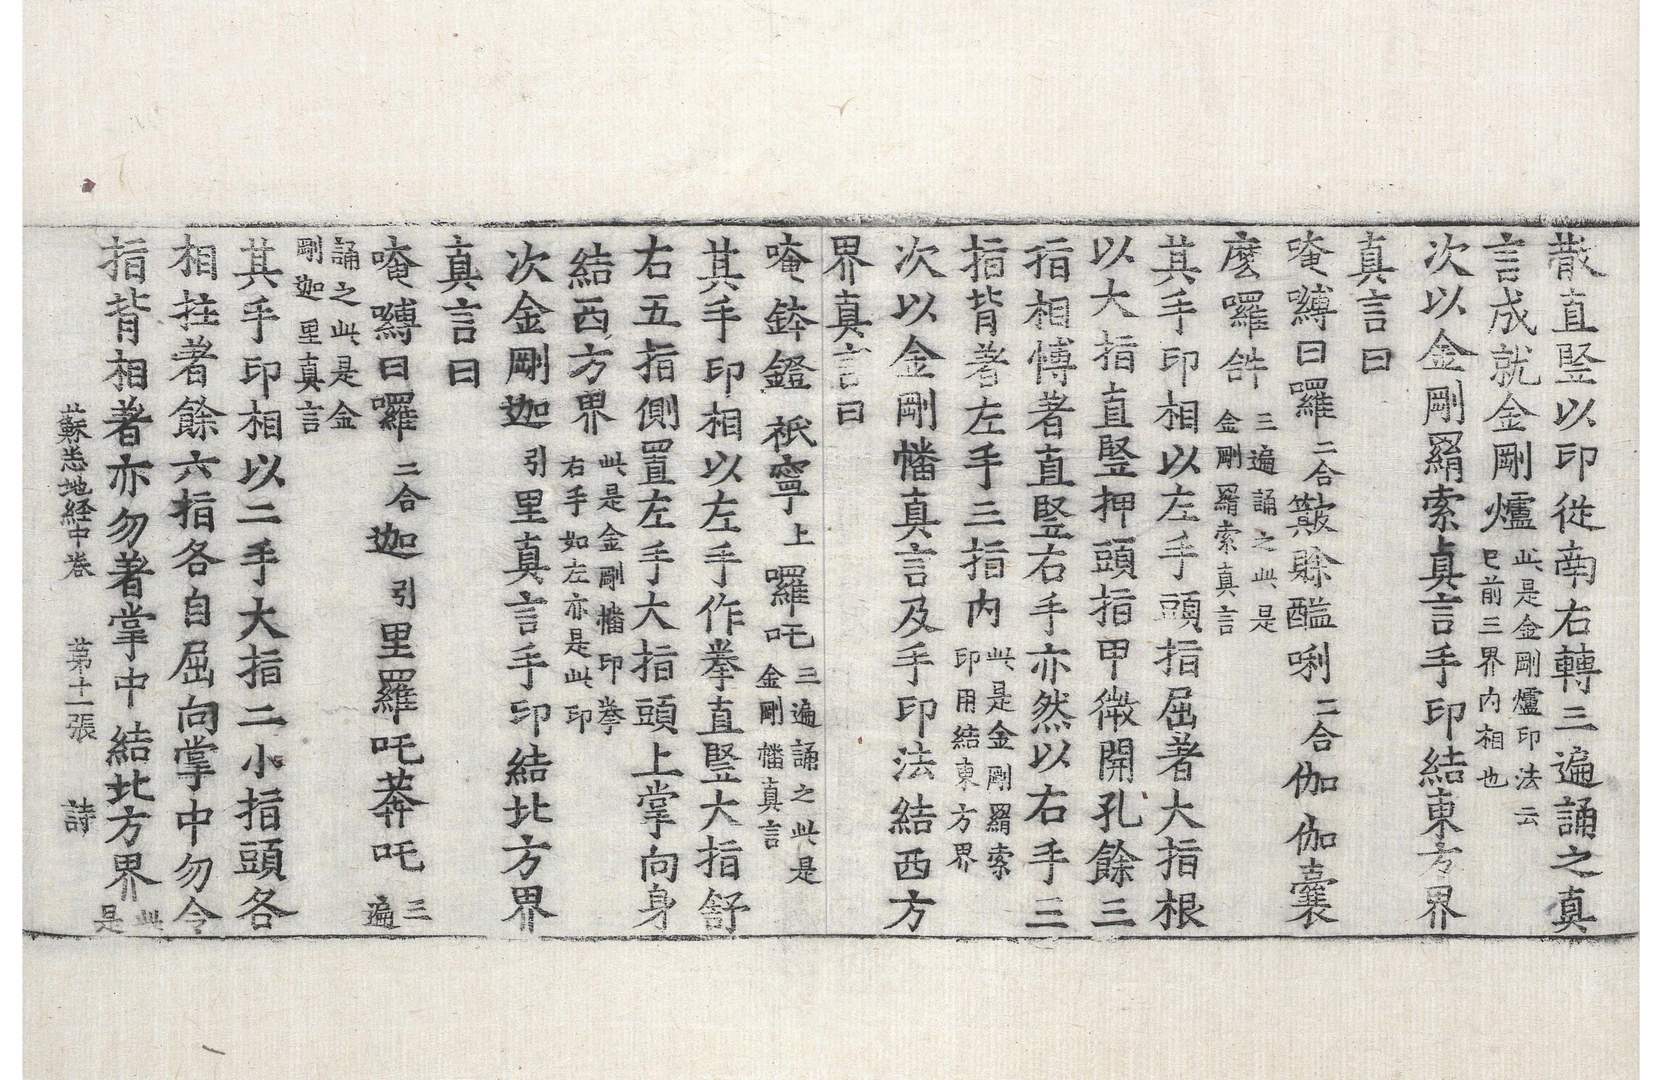 散直竪以印從南右轉三遍誦之真
言成就金剛爐此是金剛爐印法云已前三界内相也
次以金剛羂索真言手印結東方界
真言曰
唵嚩曰囉二合皽賒醯唎二合伽伽囊
麽囉誁三遍誦之此是金剛羂索真言
其手印相以左手頭指屈著大指根
以大指直竪押頭指甲微開孔餘三
指相愽著直竪右手亦然以右手三
指背著左手三指内此是金剛羂索印用結東方界
次以金剛幡真言及手印法結西方
界真言曰
唵鉢鐙祇寧上囉吒三遍誦之此是金剛幡真言
其手印相以左手作拳直竪大指舒
右五指側置左手大指頭上掌向身
結西方界此是金剛幡印拳右手如左亦是此印
次金剛迦引里真言手印結北方界
真言曰
唵嚩曰囉二合迦引里羅吒莽吒三遍
誦之此是金剛迦里真言
其手印相以二手大指二小指頭各
相拄著餘六指各自屈向掌中勿令
指背相著亦勿著掌中結北方界此是
蘇悉地経中卷 苐十一張 詩